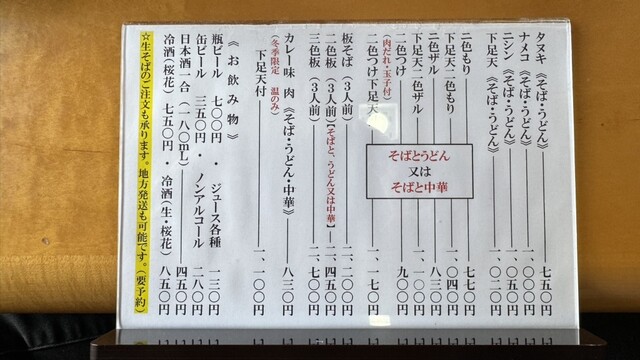 タヌキ《そば・うどん》 七五〇円
ナメコ《そば・うどん》 一、〇〇〇円
ニシン《そば・うどん》 一、〇五〇円
下足天《そば・うどん》 一、〇二〇円
二色もり 七七〇円
下足天二色もり 一、〇四〇円
二色ザル 八三〇円
下足天二色ザル 一、一〇〇円
二色つけ 九〇〇円
(肉だれ・玉子付)
二色つけ下足天 一、一七〇円
そばとうどん
又は
そばと中華
板そば(3人前) 二、二〇〇円
二色板(3人前)【そばと、うどん又は中華】 二、四五〇円
三色板(3人前) 二、七〇〇円
カレー味 肉《そば・うどん・中華》 八三〇円
(冬季限定 温のみ)
下足天付 一、一〇〇円
《お飲み物》
瓶ビール 七〇〇円・ジュース各種 一三〇円
缶ビール 三五〇円・ノンアルコール 二八〇円
日本酒一合(一八〇mL) 四五〇円
冷酒(桜花) 七五〇円・冷酒(生・桜花) 八五〇円
☆生そばのご注文も承ります。地方発送も可能です。(要予約)